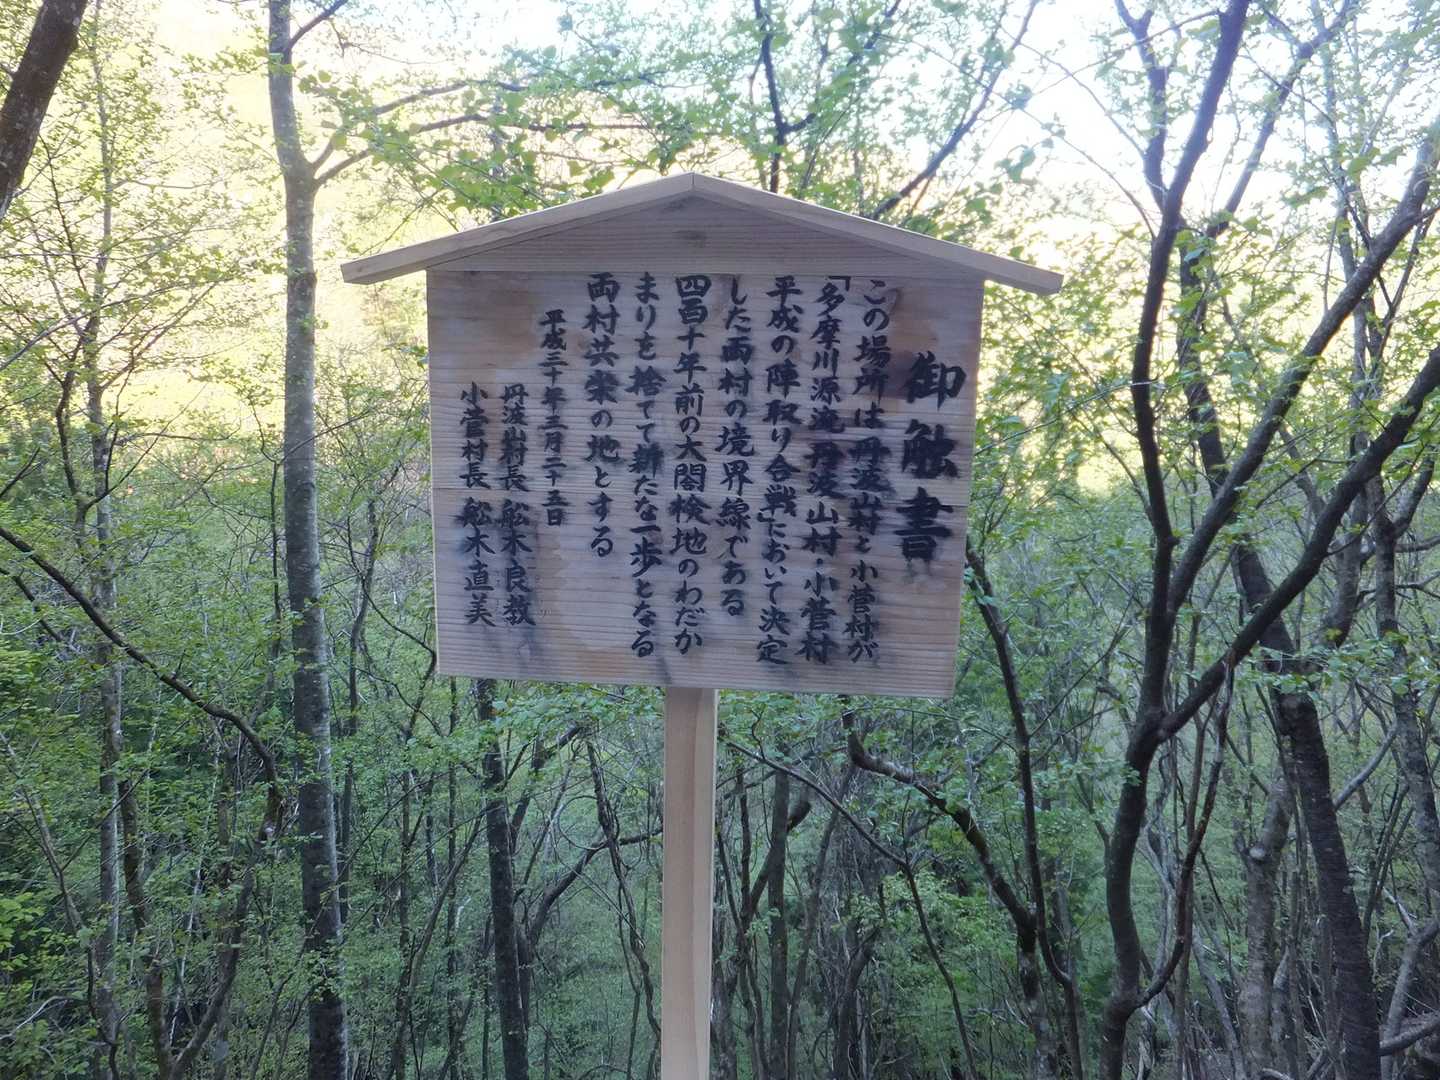 御触書
この場所は丹波山村と小菅村が
「多摩川源流丹波山村・小菅村
平成の陣取り合戦」において決定
した両村の境界線である
四百十年前の太閤検地のわだか
まりを捨てて新たな一歩となる
両村共栄の地とする
平成三十年三月二十五日
丹波山村長 舩木良教
小菅村長 舩木直美